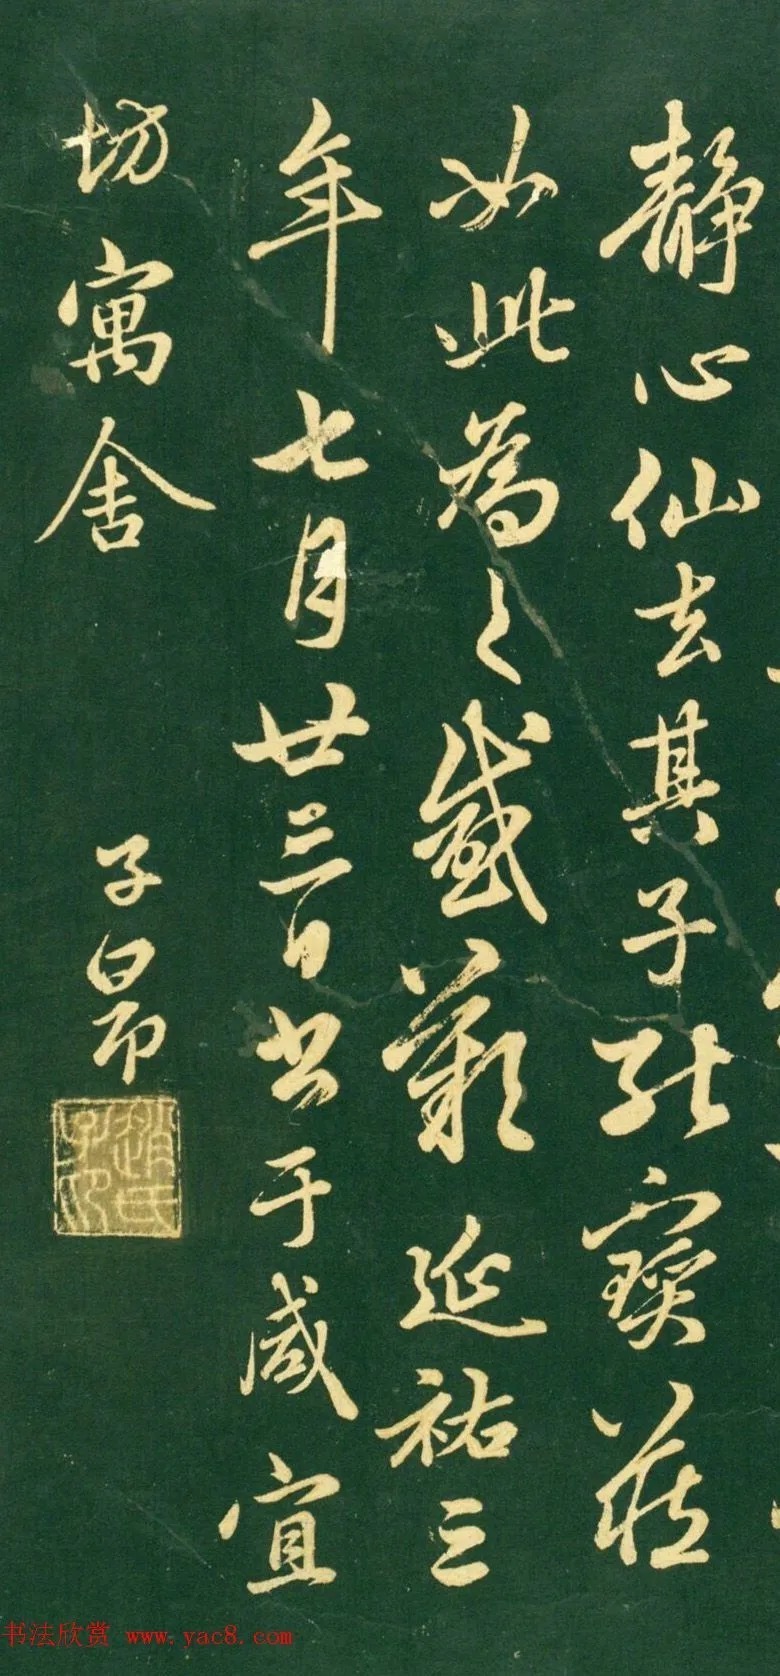 静心仙去其子能寶藏
如此為之感歎延祐三
年七月廿三日書于咸宜
坊寓舍
子昂
趙氏子昂
书法欣赏 www.yac8.com